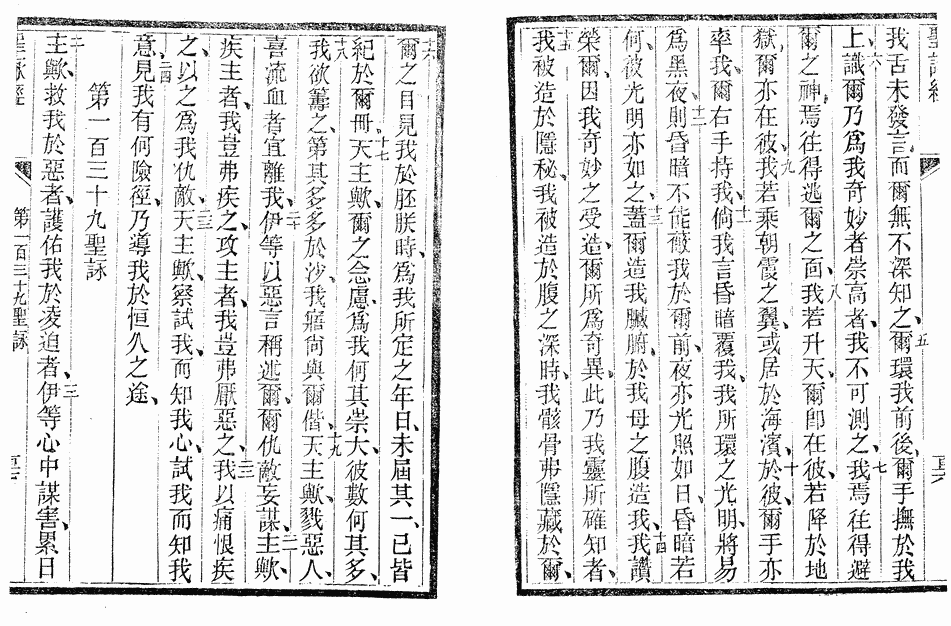 聖詠經
我舌未發言、而爾無不深知之、五爾環我前後、爾手撫於我
上、六識爾乃爲我奇妙者、崇高者、我不可測之、七我焉往得避
爾之神、焉往得逃爾之面、八我若升天、爾卽在彼、若降於地
獄、爾亦在彼、九我若乘朝霞之翼、或居於海濱、十於彼、爾手亦
率我、爾右手持我、十一倘我言昏暗覆我、我所環之光明、將易
爲黑夜、十二則昏暗不能蔽我於爾前、夜亦光照如日、昏暗若
何、被光明亦如之、十三蓋爾造我臟腑、於我母之腹造我、十四我讚
榮爾、因我奇妙之受造、爾所爲奇異、此乃我靈所確知者、
十五我被造於隱祕、我被造於腹之深時、我骸骨弗隱藏於爾、
十六爾之目見我於胚朕時、爲我所定之年日、未屆其一、已皆
紀於爾冊、十七天主歟、爾之念慮、爲我何其崇大、彼數何其多、
十八我欲籌之、第其多多於沙、我寤尙與爾偕、十九天主歟、戮惡人、
喜流血者宜離我、二十伊等以惡言稱述爾、爾仇敵妄謀、二一主歟、
疾主者、我豈弗疾之、攻主者、我豈弗厭惡之、二二我以痛恨疾
之、以之爲我仇敵、二三天主歟、察試我、而知我心、試我而知我
意、二四見我有何險徑、乃導我於恒久之途、
第一百三十九聖詠
二主歟、救我於惡者、護佑我於凌迫者、三伊等心中謀害、累日
第一百三十九聖詠